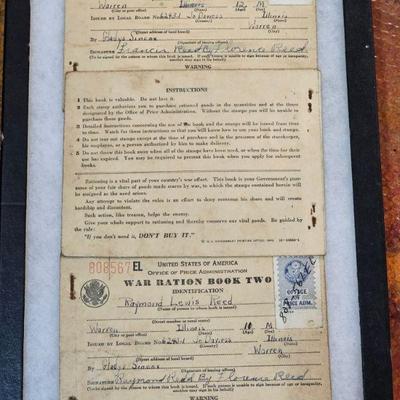 Warren Illinois 12 M
(City or post office) (State) (Age) (Sex)
ISSUED BY LOCAL BOARD No. 62431 Jo Daviess Illinois
Warren
(Street address of local board) (City)
By Gladys Simcox
(Signature of issuing officer)
SIGNATURE Francis Reed By Florence Reed
WARNING
INSTRUCTIONS
1 This book is valuable. Do not lose it.
2 Each stamp authorizes you to purchase rationed goods in the quantities and at the times
designated by the Office of Price Administration. Without the stamps you will be unable to
purchase those goods.
3 Detailed instructions concerning the use of the book and the stamps will be issued from time
to time. Watch for those instructions so that you will know how to use your book and stamps.
4 Do not tear out stamps except at the time of purchase and in the presence of the storekeeper,
his employee, or a person authorized by him to make delivery.
5 Do not throw this book away when all of the stamps have been used, or when the time for their
use has expired. You may be required to present this book when you apply for subsequent
books.
Rationing is a vital part of your country's war effort. This book is your Government's guarantee
of your fair share of goods made scarce by war, to which the stamps contained herein will
be assigned as the need arises.
Any attempt to violate the rules is an effort to deny someone his share and will create
hardship and discontent.
Such action, like treason, helps the enemy.
Give your whole support to rationing and thereby conserve our vital goods. Be guided by
the rule:
"If you don't need it, DON'T BUY IT."
808567 EL UNITED STATES OF AMERICA
OFFICE OF PRICE ADMINISTRATION
WAR RATION BOOK TWO
IDENTIFICATION
Raymond Lewis Reed
(Name of person to whom book is issued)
(Street number or rural route)
Warren Illinois 10 M
(City or post office) (State) (Age) (Sex)
ISSUED BY LOCAL BOARD No. 62431 Jo Daviess Illinois
Warren
(Street address of local board) (City)
By Gladys Simcox
(Signature of issuing officer)
SIGNATURE Raymond Reed By Florence Reed
WARNING
OFFICE OF
PRICE ADM.